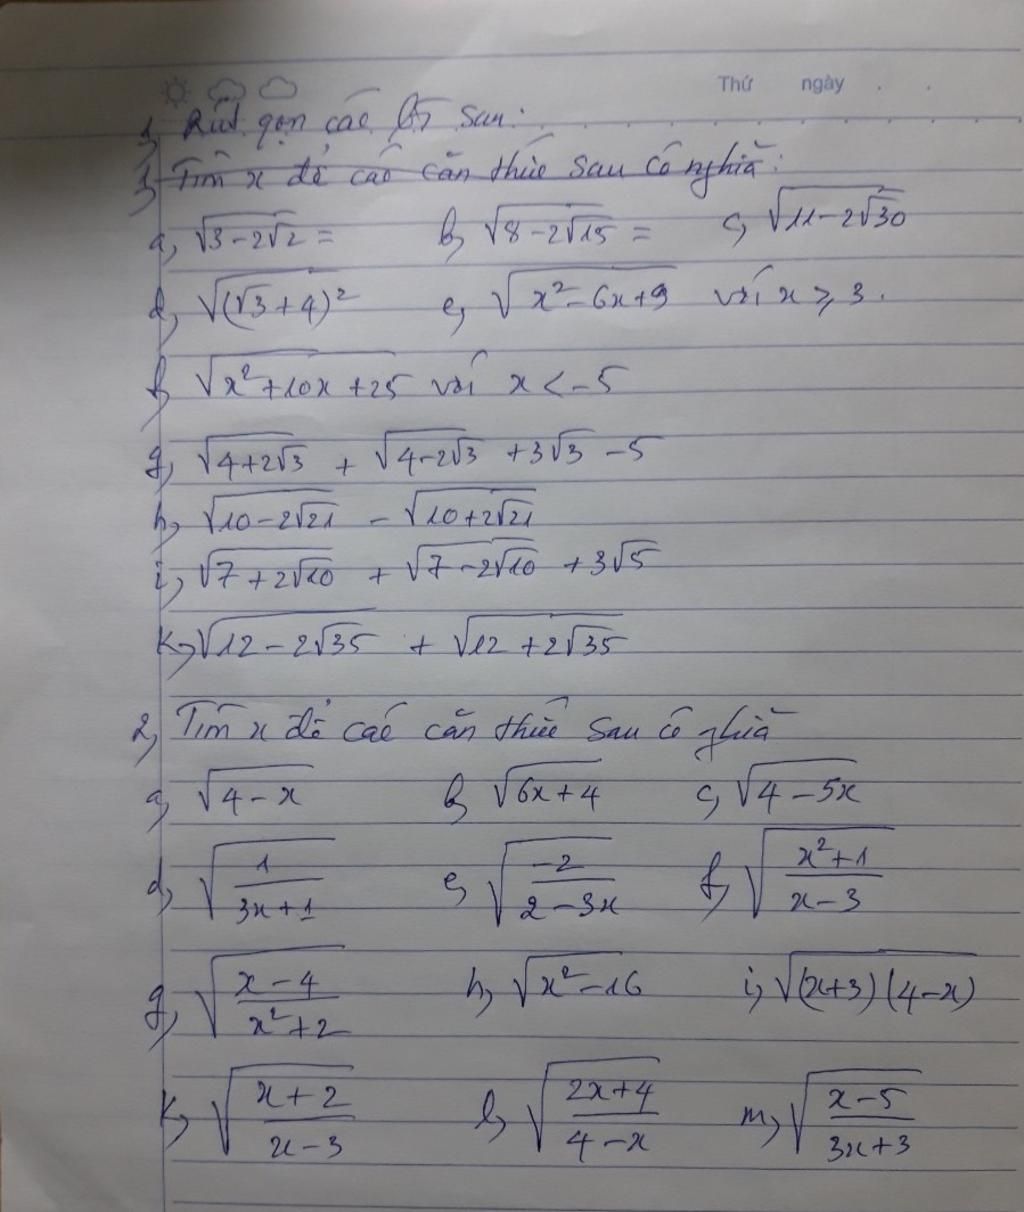 Thứ ngày . .
1, Rút gọn các bt sau:
1, Tìm x để các căn thức sau có nghĩa:
a, √(3-2√2) = b, √(8-2√15) = c, √(11-2√30)
d, √((√3+4)²) e, √(x²-6x+9) với x ⩾ 3.
f, √(x²+10x+25) với x < -5
g, √(4+2√3) + √(4-2√3) +3√3 -5
h, √(10-2√21) - √(10+2√21)
i, √(7+2√10) + √(7-2√10) +3√5
k, √(12-2√35) + √(12+2√35)
2, Tìm x để các căn thức sau có nghĩa
a, √(4-x) b, √(6x+4) c, √(4-5x)
d, √(1/(3x+1)) e, √(-2/(2-3x)) f, √((x²+1)/(x-3))
g, √((x-4)/(x²+2)) h, √(x²-16) i, √((x+3)(4-x))
k, √((x+2)/(x-3)) l, √((2x+4)/(4-x)) m, √((x-5)/(3x+3))